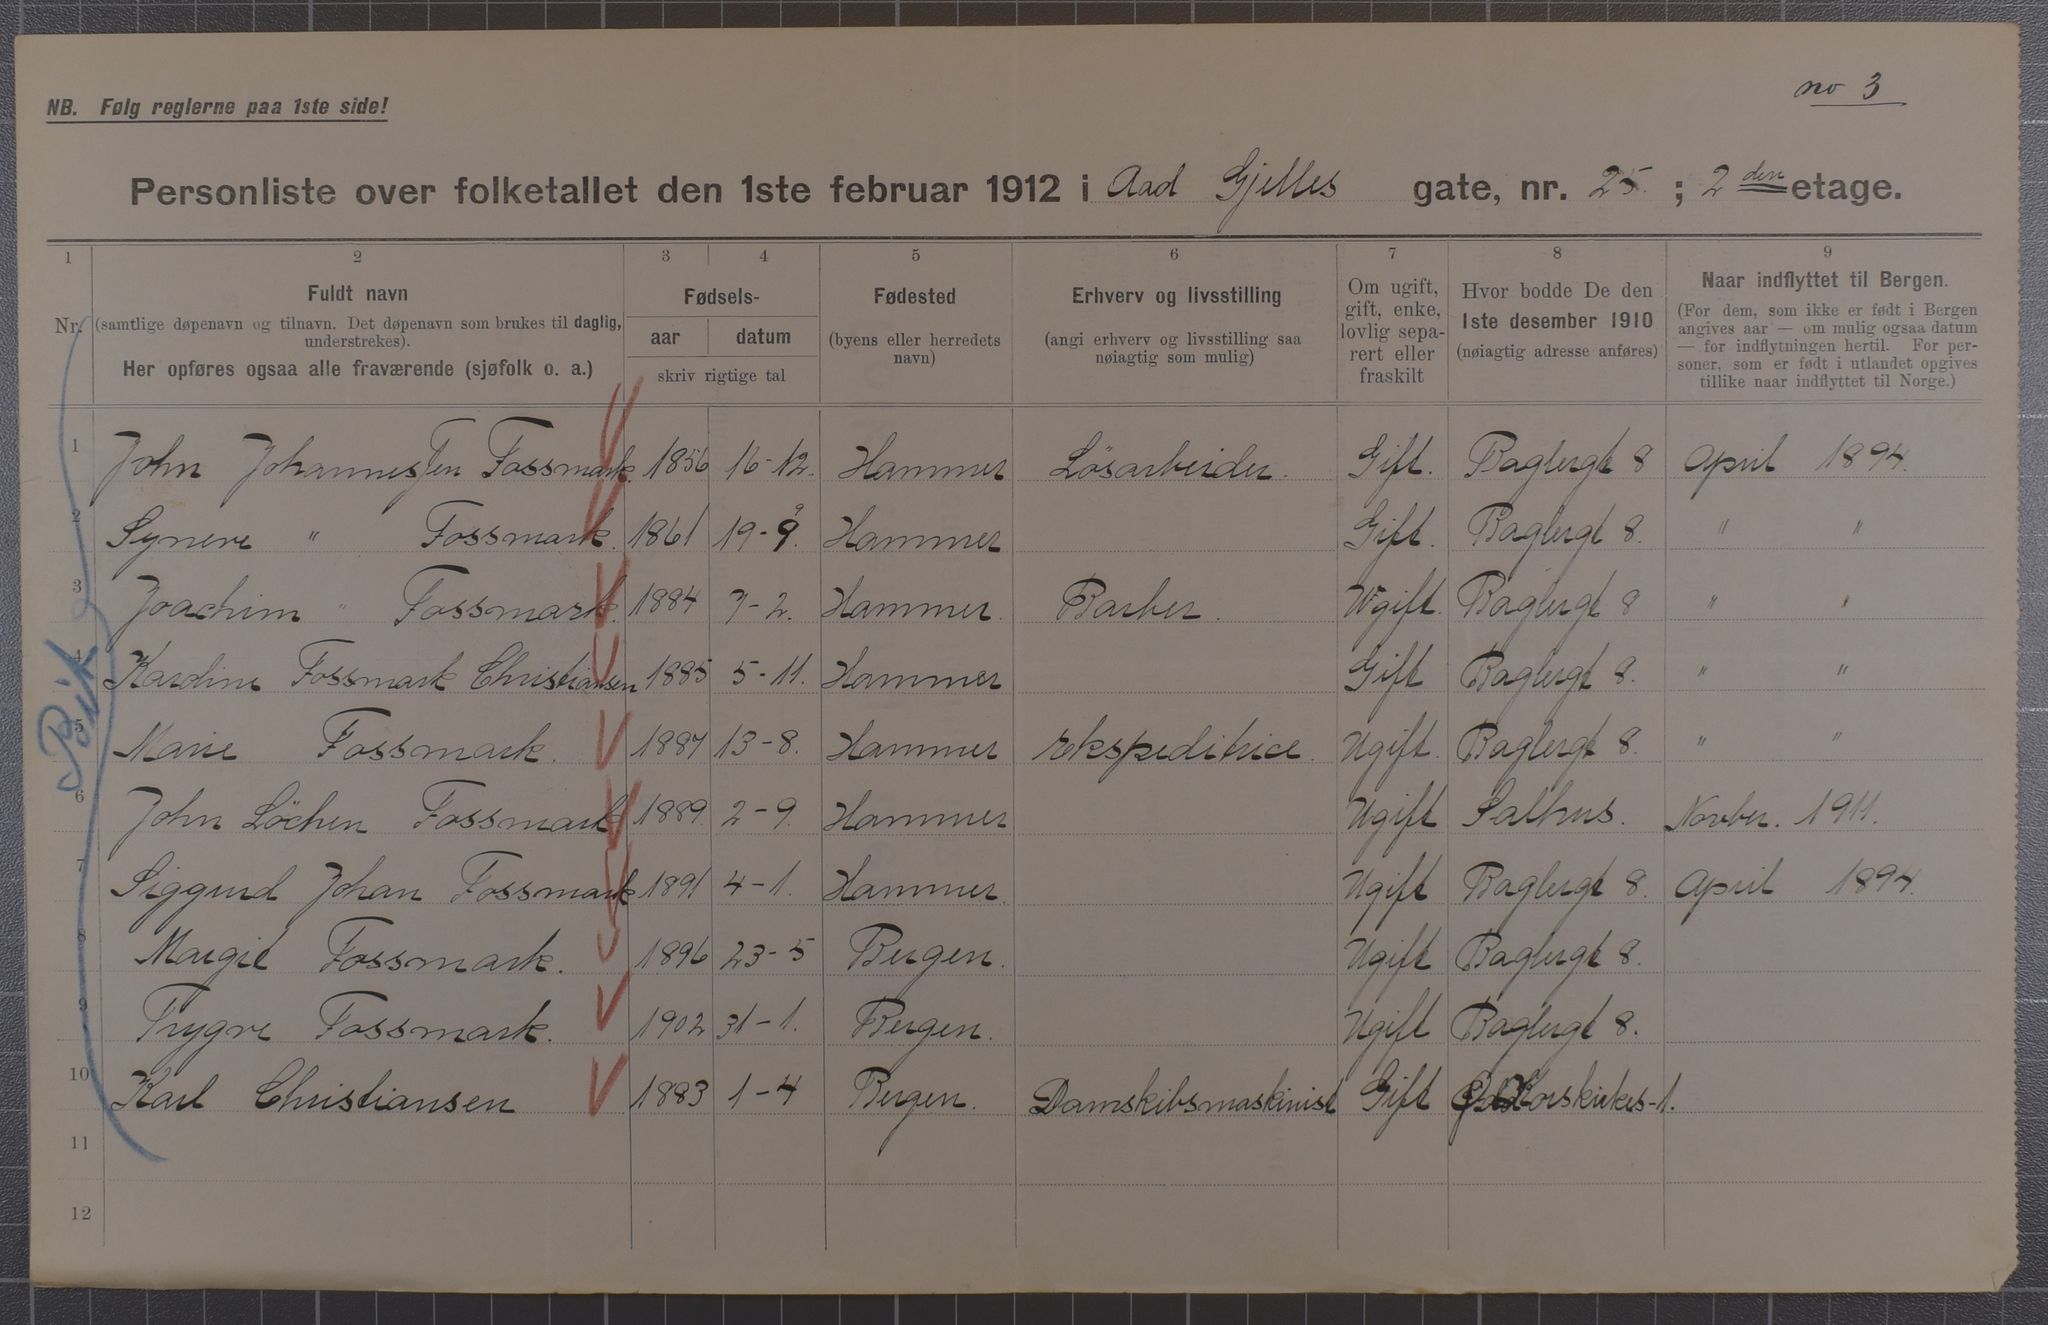 no 3
NB. Følg reglerne paa 1ste side!
Personliste over folketallet den 1ste februar 1912 i Aad Gjelles gate, nr. 25. ; 2 den etage.
1 2 3 4 5 6 7 8 9
Nr.
Fuldt navn
(samtlige døpenavn og tilnavn. Det døpenavn som brukes til daglig,
understrekes).
Her opføres ogsaa alle fraværende (sjøfolk o. a.)
Fødsels-
aar datum
skriv rigtige tal
Fødested
(byens eller herredets
navn)
Erhverv og livsstilling
(angi erhverv og livsstilling saa
nøiagtig som mulig)
Om ugift,
gift, enke,
lovlig sepa-
rert eller
fraskilt
Hvor bodde De den
1ste desember 1910
(nøiagtig adresse anføres)
Naar indflyttet til Bergen.
(For dem, som ikke er født i Bergen
angives aar — om mulig ogsaa datum
— for indflytningen hertil. For per-
soner, som er født i utlandet opgives
tillike naar indflyttet til Norge.)
1 John Johannesjen Fossmark. 1856 16-12. Hammer Lösarbeider. Gift. Baglergt 8 April 1894.
2 Syneve " Fossmark. 1861 19-9. Hammer Gift. Baglergt 8. " "
3 Joachim " Fossmark. 1884 7-2. Hammer. Barber. Ugift. Baglergt 8 " "
4 Karoline Fossmark Christiansen 1885 5-11. Hammer Gift Baglergt 8. " "
5 Marie Fossmark. 1887 13-8. Hammer ekspeditrice. Ugift. Baglergt 8. " "
6 John Löchen Fossmark 1889. 2-9 Hammer Ugift Salhus. Novber. 1911.
7 Siggurd Johan Fossmark 1891 4-1. Hammer. Ugift Baglergt 8. April 1894.
8 Margit Fossmark. 1896 23-5 Bergen. Ugift Baglergt 8.
9 Trygve Fossmark. 1902 31-1. Bergen. Ugift Baglergt 8.
10 Karl Christiansen 1883 1-4 Bergen. Damskibsmaskinist Gift Korskirkes-1.
11
12